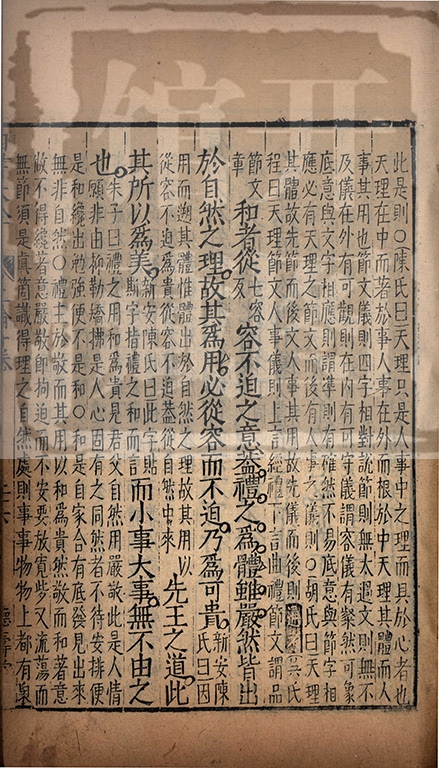 此是則○陳氏曰天理只是人事中之理而具於心者也
天理在中而著於事人事在外而根於中天理其體而人
事其用也節文儀則四字相對說節則無太過文則無不
及儀在外有可觀則在內有可守儀謂容儀有粲然可象
底意與文字相應則謂準則有確然不易底意與節字相
應必有天理之節文而後有人事之儀則○胡氏曰天理
其體故先節而後文人事其用故先儀而後則
吳氏
程曰天理節文人事儀則上言經禮下言曲禮節文謂品
節文
章 和者從七容反容不迫之意蓋禮之為體雖嚴然皆出
於自然之理故其為用必從容而不迫乃為可貴新安陳氏曰因
用而遡其體惟體出於自然之理故其用以
從容不迫為貴從容不迫蓋從自然中來 先王之道此
其所以為美新安陳氏曰此字貼斯字指禮之和而言而小事大事無不由之
也朱子曰禮之用和為貴見君父自然用嚴敬此是人情
願非由抑勒矯拂是人心固有之同然者不待安排便
是和纔出勉強便不是和○和是自家合有底發見出來
無非自然○禮主於敬而其用以和為貴然敬而和著意
做不得纔著意嚴敬即拘迫而不安要放寬些又流蕩而
無節須是真箇識得理之自然處則事事物物上都有自